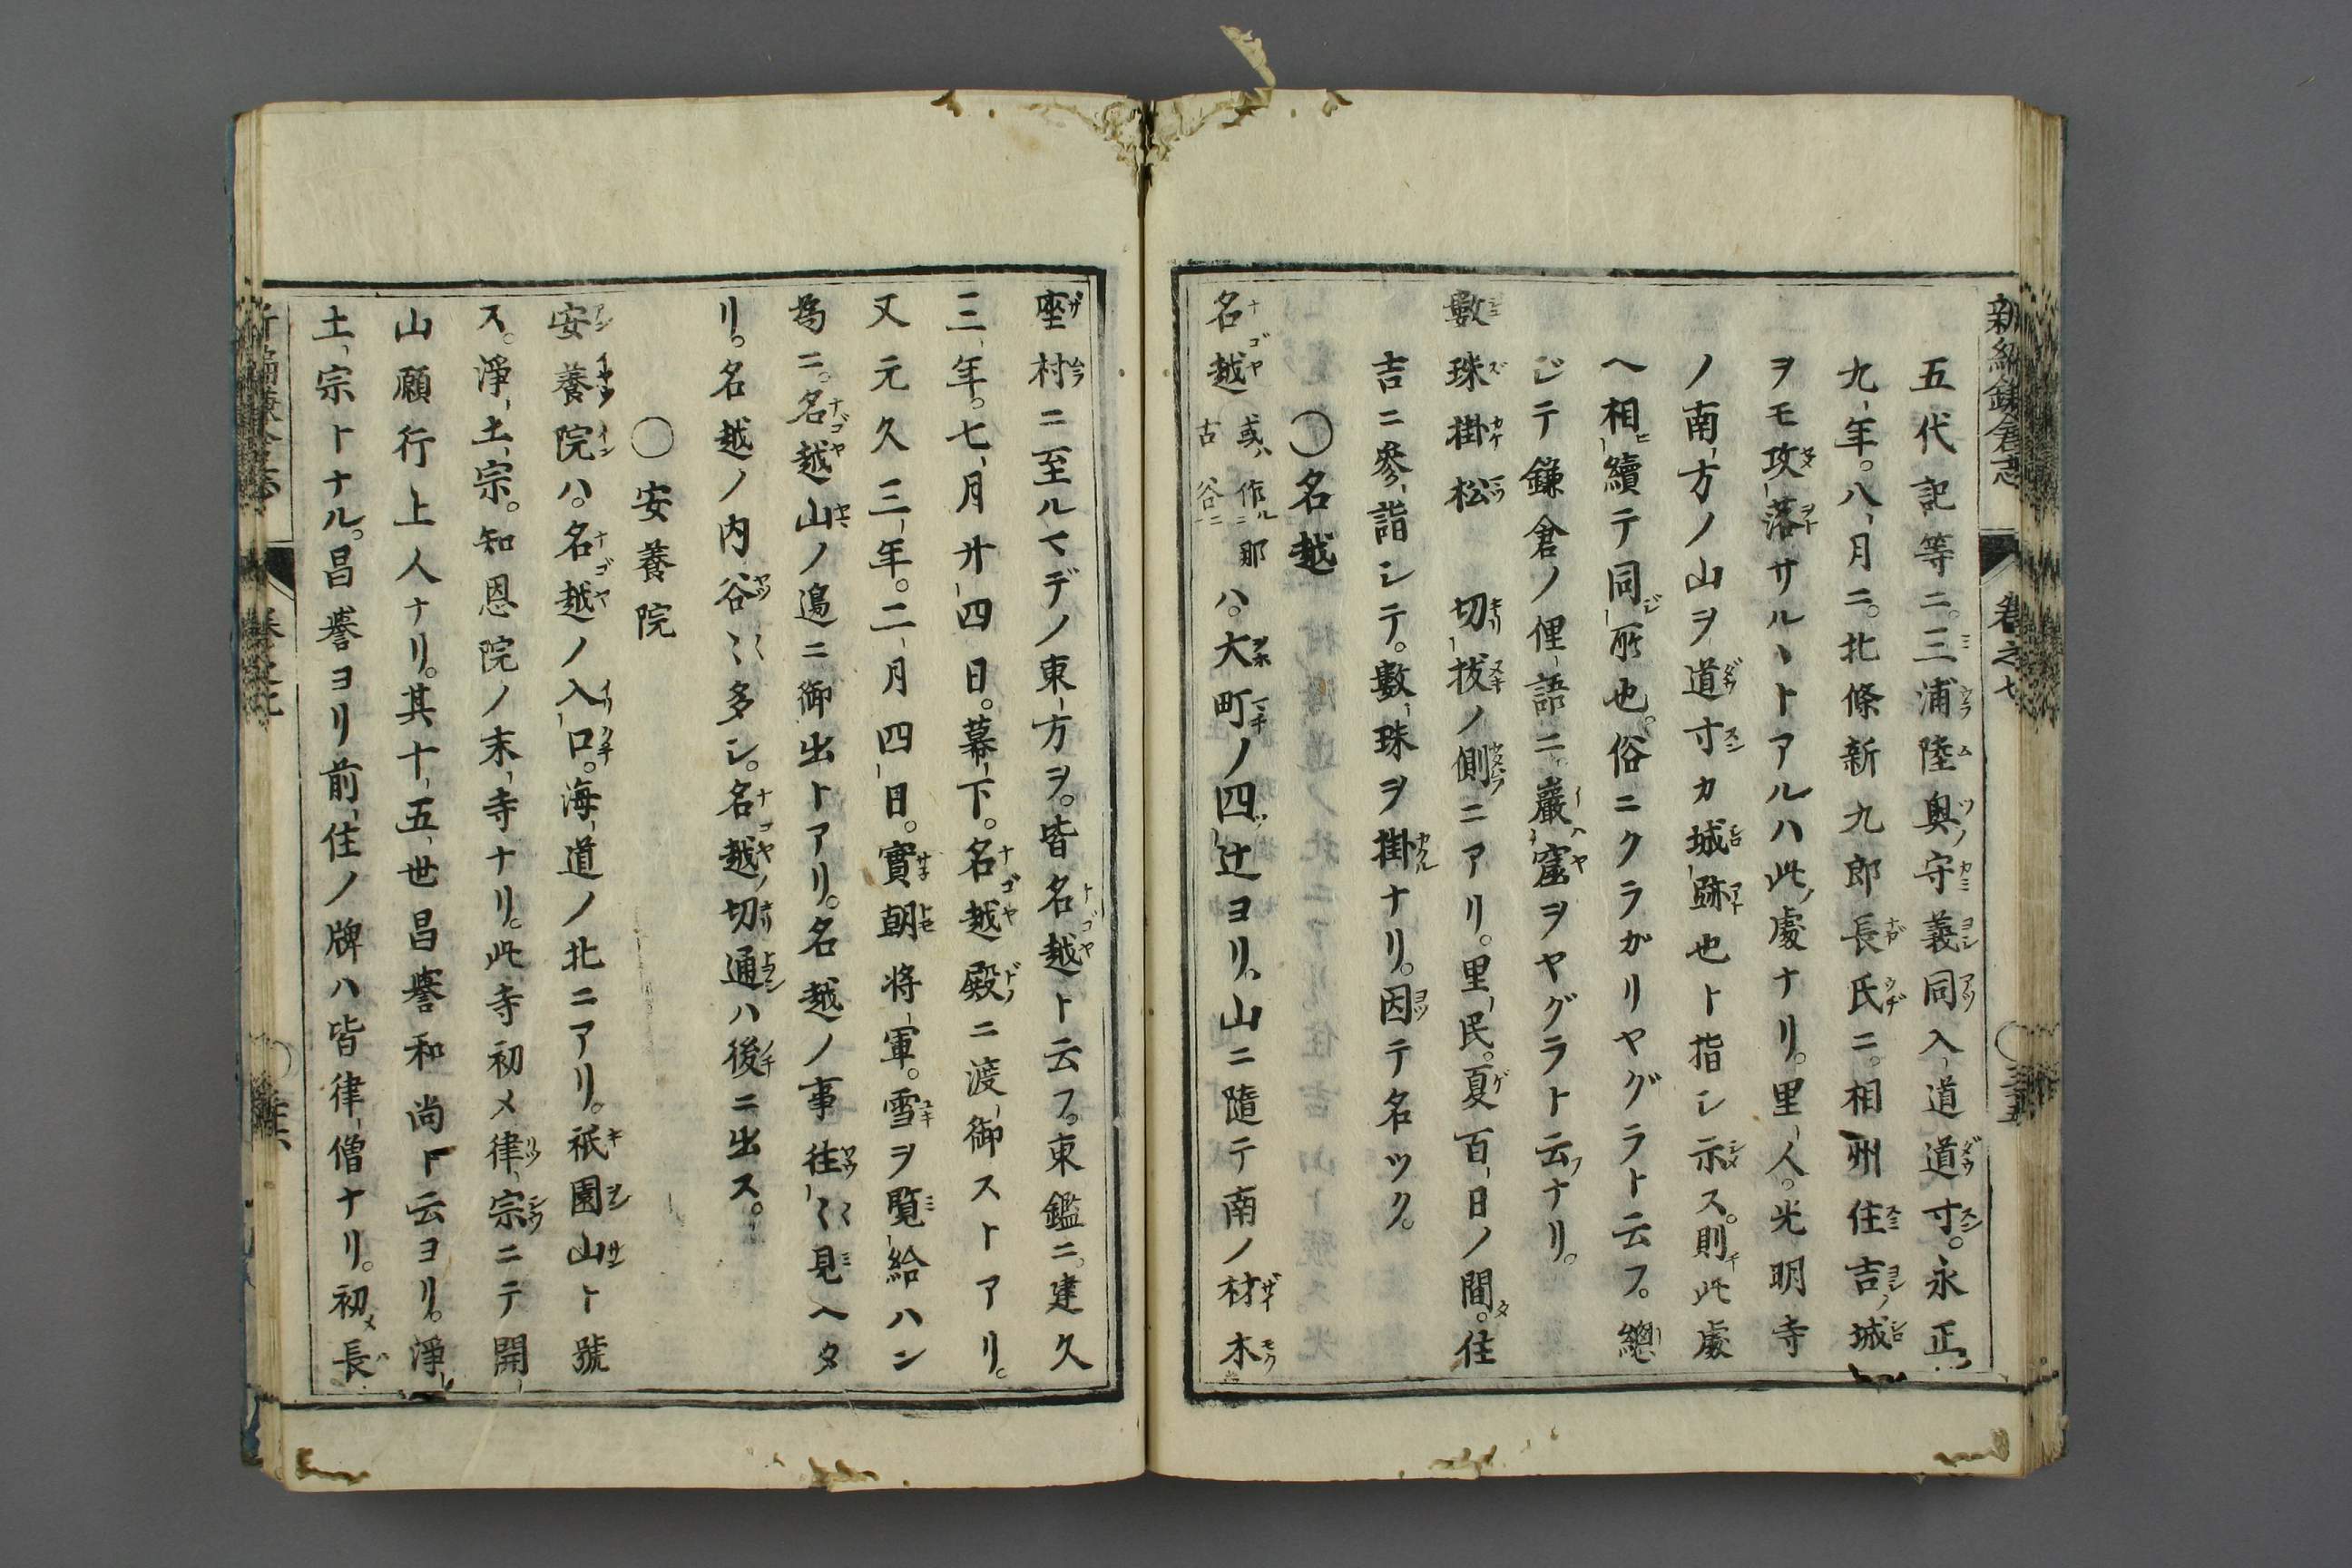 新編鎌倉志 卷之七 〇三十五
五代記等ニ。三浦陸奥守義同入道道寸。永正
九年。八月ニ。北條新九郎長氏ニ。相州住吉ノ城
ヲモ攻落サルヽトアルハ此ノ處ナリ。里人。光明寺
ノ南方ノ山ヲ道寸カ城跡也ト指シ示ス。則チ此處
ヘ相續テ同所也。俗ニクラガリヤグラト云フ。總
ジテ鎌倉ノ俚語ニ。巖窟ヲヤグラト云フナリ。
數珠掛松 切拔ノ側ニアリ。里民。夏百日ノ間。住
吉ニ參詣シテ。數珠ヲ掛ナリ。因テ名ツク。
〇名越
名越或ハ作ル那古谷ニハ。大町ノ四ツ辻ヨリ。山ニ隨テ南ノ材木
座村ニ至ルマデノ東方ヲ。皆名越ト云フ。東鑑ニ。建久
三年。七月廿四日。幕下。名越殿ニ渡御ストアリ。
又元久三年。二月四日。實朝將軍。雪ヲ覽給ハン
爲ニ。名越山ノ邊ニ御出トアリ。名越ノ事往〻見ヘタ
リ。名越ノ内谷〻多シ。名越ノ切通ハ後ニ出ス。
〇安養院
安養院ハ。名越ノ入口。海道ノ北ニアリ。祇園山ト號
ス。淨土宗。知恩院ノ末寺ナリ。此寺初メ律宗ニテ開
山願行上人ナリ。其十五世昌譽和尚ト云ヨリ。淨
土宗トナル。昌譽ヨリ前住ノ牌ハ皆律僧ナリ。初メ長